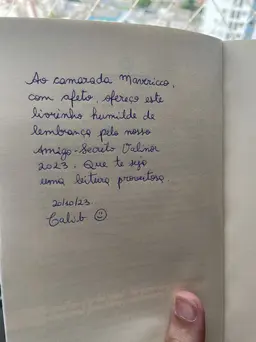 Ao camarada Mavericco,
com afeto, ofereço este
livrinho humilde de
lembrança pelo nosso
Amigo-Secreto Valinor
2023. Que te seja
uma leitura proveitosa.
20/10/23
Calib ☺